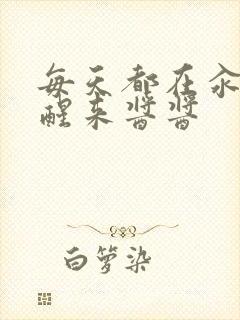 每天都在汆
醒来酱酱
白箩染